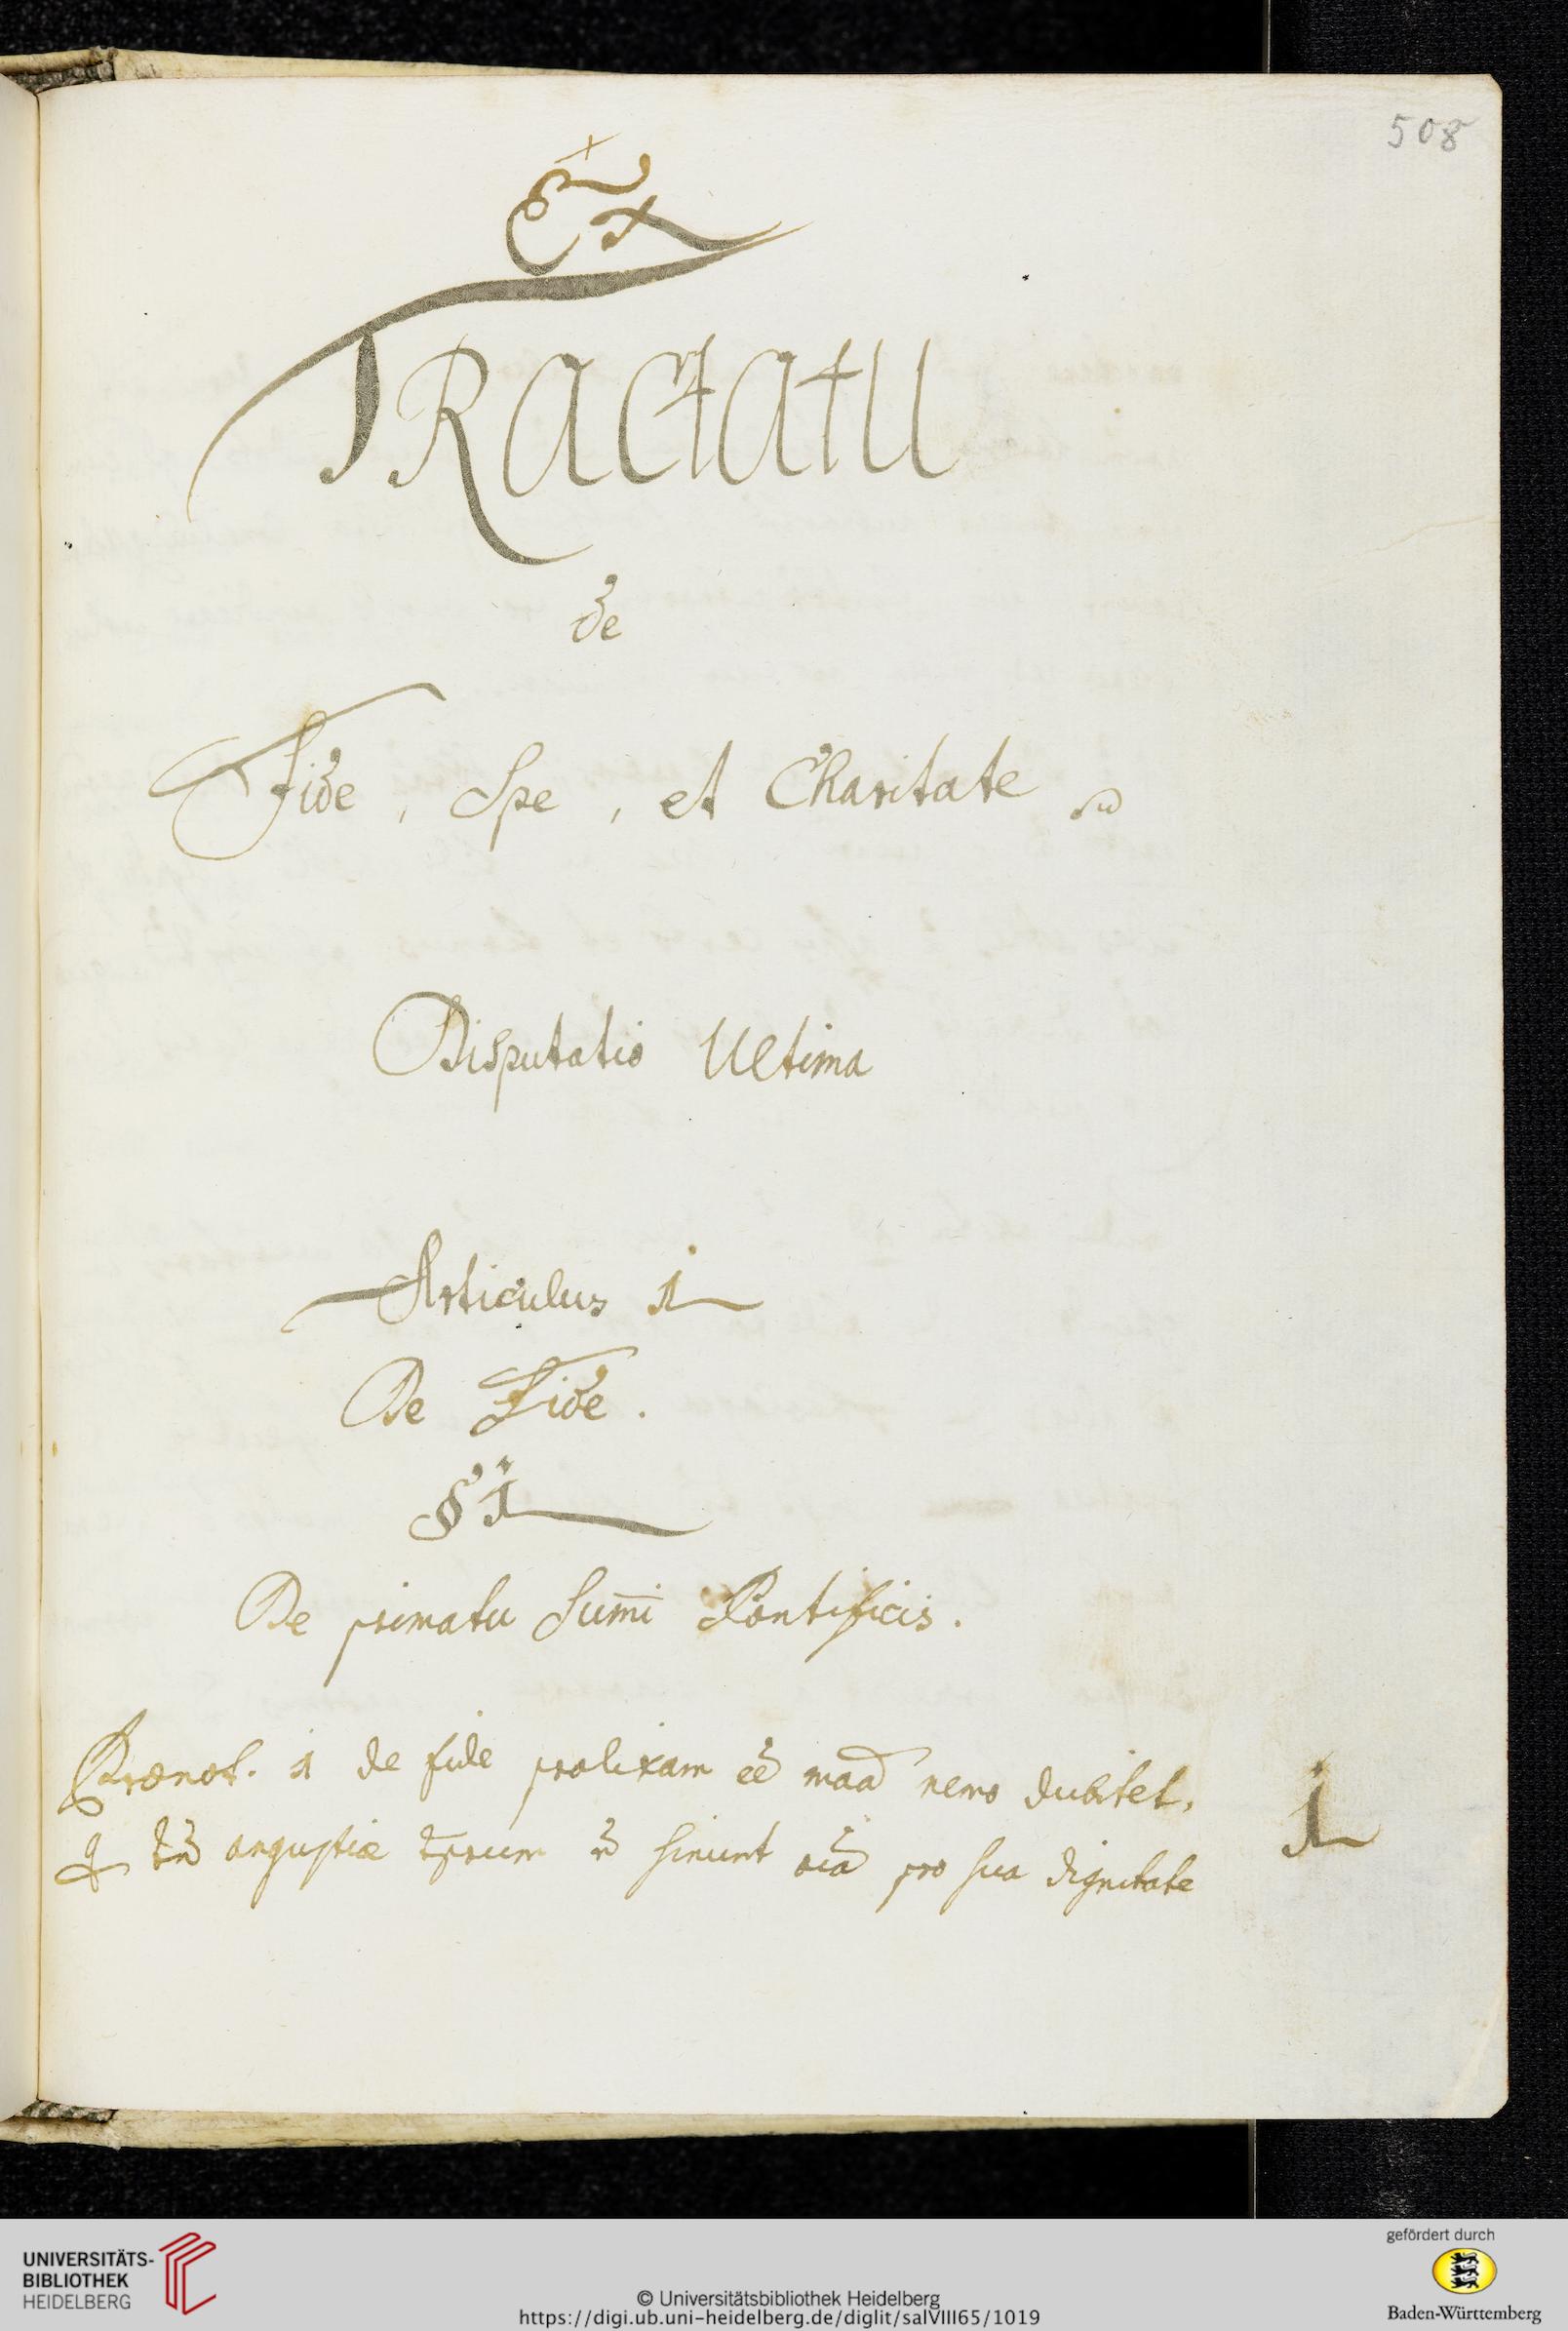 508
Ex
TRactatu
de
Fide, Spe, et Charitate
Disputatio Ultima
Articulus 1
De Fide.
§ 1
De primatu Sum̄i Pontificis.
Prænot. 1 de fide prolixam eē maā nemo dubitet,
tn̄ angustiæ n̄ sinunt oīa pro sua dignitate
1
UNIVERSITÄTS-
BIBLIOTHEK
HEIDELBERG
© Universitätsbibliothek Heidelberg
https://digi.ub.uni-heidelberg.de/diglit/salVIII65/1019
gefördert durch
Baden-Württemberg